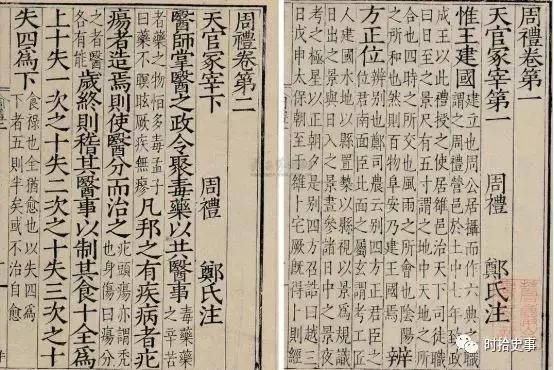 周禮卷第一
天官冢宰第一　周禮　鄭氏注
惟王建國建立也周公居攝而作六典之職
謂之周禮營邑於土中七年致政
成王以此禮授之使居雒邑治天下司徒職
曰日至之景尺有五寸謂之地中天地之所
合也四時之所交也風雨之所會也陰陽
之所和也然則百物阜安乃建王國焉辨
方正位辨別也鄭司農云別四方正君臣之
位君南面臣北面之屬玄謂考工匠
人建國水地以縣置槷以縣視以景爲規識
日出之景與日入之景晝參諸日中之景夜
考之極星以正朝夕是別四方召誥曰越三
日戊申太保朝至于雒卜宅厥既得卜則經
周禮卷第二
天官冢宰下　周禮　鄭氏注
醫師掌醫之政令聚毒藥以共醫事毒藥藥
之辛苦
者藥之物恒多毒孟子
曰藥不瞑眩厥疾無瘳凡邦之有疾病者疕
瘍者造焉則使醫分而治之疕頭瘍亦謂禿
也身傷曰瘍分
之者醫
各有能歲終則稽其醫事以制其食十全爲
上十失一次之十失二次之十失三次之十
失四爲下食祿也全猶愈也以失四爲
下者五則半矣或不治自愈
时拾史事